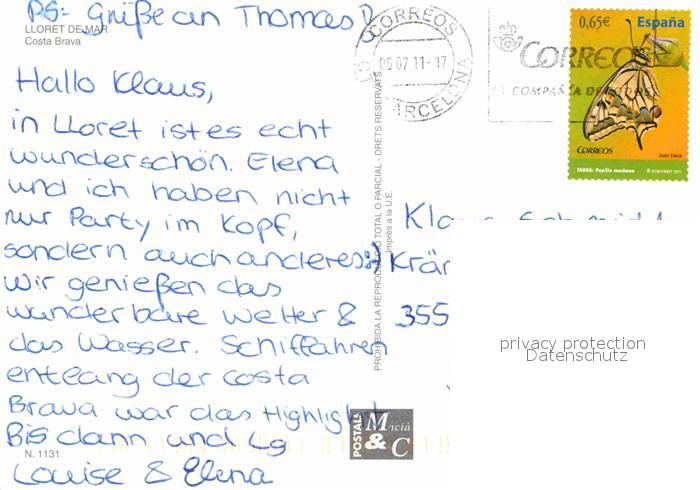 PS: Grüße an Thomas!
LLORET DE MAR
Costa Brava
Hallo Klaus,
in Lloret ist es echt
wunderschön. Elena
und ich haben nicht
nur Party im Kopf,
sondern auch anderes :)
wir genießen das
wunderbare Wetter &
das Wasser. Schiffahren
entlang der Costa
Brava war das Highlight
Bis dann und Lg
Louise & Elena
N. 1131
PROHIBIDA LA REPRODUCCIÓ TOTAL O PARCIAL - DRETS RESERVATS
Imprès a la U.E.
POSTALS
M
ncià
& C
CORREOS
06 07 11 - 17
BARCELONA
CORREOS
LA COMPAÑÍA DE TODOS
0,65€
España
CORREOS
Juan Daza
FAUNA: Papilio machaon
355
privacy protection
Datenschutz